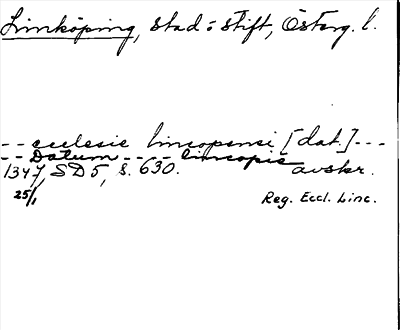 Linköping, stad o stift, Österg. l.
-- ecclesie lincopensi [dat.] ---
-- Datum -- -- lincopie
1347, SD 5, s. 630. avskr.
25/1 Reg. Eccl. Linc.